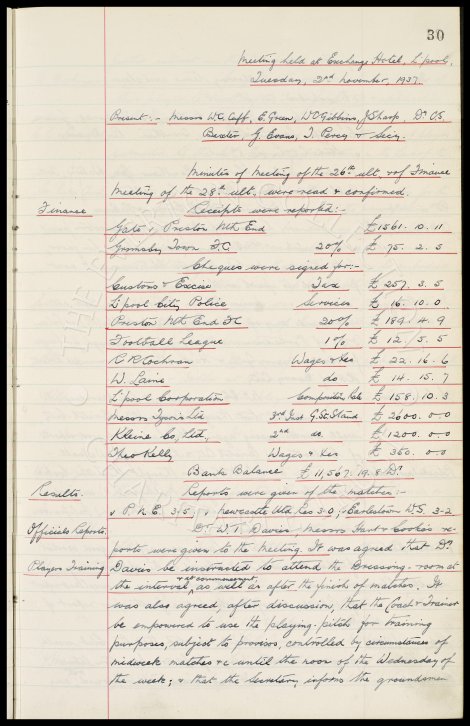 30
Meeting held at Exchange Hotel, L'pool,
Tuesday, 2nd November, 1937.
Present:- Messrs W.C. Cuff, E. Green, W.C. Gibbins, J. Sharp, Dr C.S.
Baxter, G. Evans, T. Percy & Secy.
Minutes of Meeting of the 26th ult. & of Finance
Meeting of the 28th ult., were read & confirmed.
Finance Receipts were reported:-
Gate v. Preston Nth End £1561. 10. 11
Grimsby Town F.C 20% £ 75. 2. 5
Cheques were signed for:-
Customs & Excise Tax £ 257. 3. 5
L'pool City Police Services £ 16. 10. 0
Preston Nth End FC 20% £ 189. 4. 9
Football League 1% £ 12. 5. 5
C R Cochran Wages & Exs £ 22. 16. 6
W. Laine do £ 14. 15. 7
L'pool Corporation £ 158. 10. 3
Messrs Ltd 3rd Inst G. St. Stand £ 2600. 0. 0
Kleine Co, Ltd, 2nd do. £ 1200. 0. 0
Theo Kelly Wages & Exs £ 350. 0. 0
Bank Balance £ 11,567. 19. 8 Dr
Results. Reports were given of the matches:-
v P. N. E. 3.5; v Newcastle Utd Res 3.0; v Earlestown W.S. 3-2
Officials Reports. Dr. W. T. Davies Messrs Hunt & Cooke's re-
ports were given to the Meeting. It was agreed that Dr.
Players Training Davies be instructed to attend the Dressing-room at
the interval, & at commencement as well as after the finish of matches. It
was also agreed, after discussion, that the Coach & Trainer
be empowered to use the playing-pitch for training
purposes, subject to provisos, controlled by circumstances of
midweek matches &c until the noon of the Wednesday of
the week; & that the Secretary informs the groundsmen